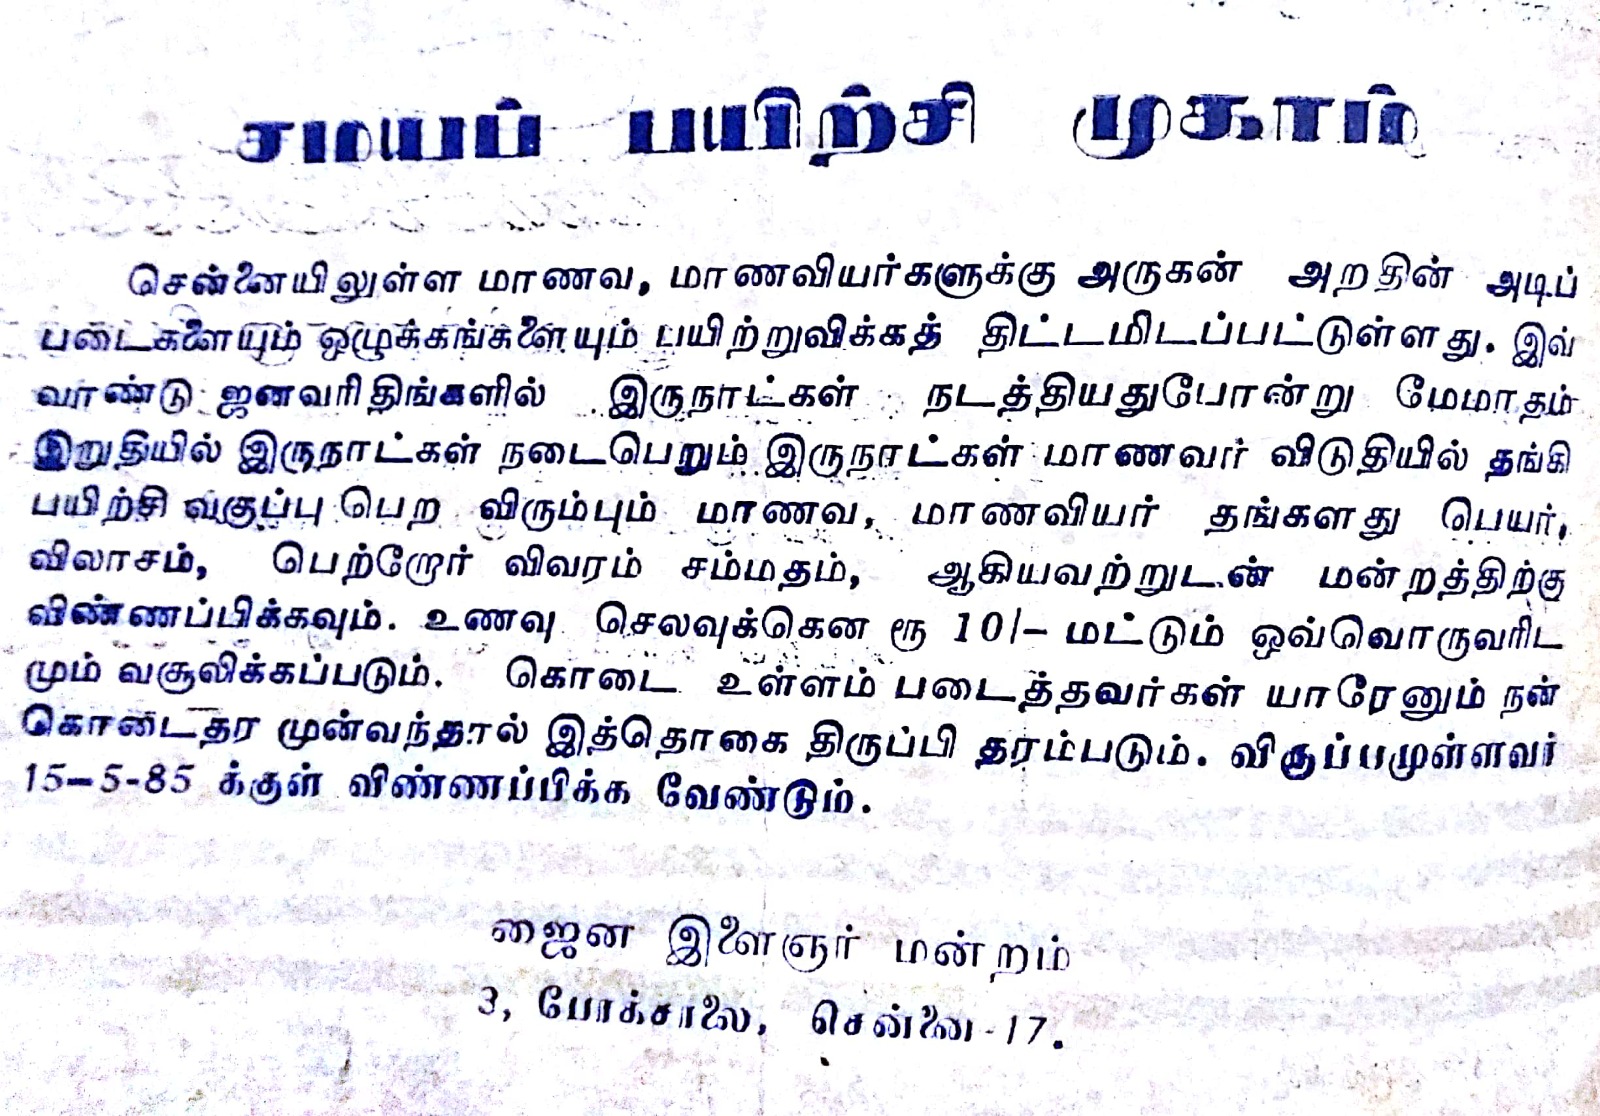 சமயப் பயிற்சி முகாம்
சென்னையிலுள்ள மாணவ, மாணவியர்களுக்கு அருகன் அறதின் அடிப்
படைகளையும் ஒழுக்கங்களையும் பயிற்றுவிக்கத் திட்டமிடப்பட்டுள்ளது. இவ்
வாண்டு ஜனவரிதிங்களில் இருநாட்கள் நடத்தியதுபோன்று மேமாதம்
இறுதியில் இருநாட்கள் நடைபெறும் இருநாட்கள் மாணவர் விடுதியில் தங்கி
பயிற்சி வகுப்பு பெற விரும்பும் மாணவ, மாணவியர் தங்களது பெயர்,
விலாசம், பெற்றோர் விவரம் சம்மதம், ஆகியவற்றுடன் மன்றத்திற்கு
விண்ணப்பிக்கவும். உணவு செலவுக்கென ரூ 10/- மட்டும் ஒவ்வொருவரிட
மும் வசூலிக்கப்படும். கொடை உள்ளம் படைத்தவர்கள் யாரேனும் நன்
கொடைதர முன்வந்தால் இத்தொகை திருப்பி தரம்படும். விருப்பமுள்ளவர்
15-5-85 க்குள் விண்ணப்பிக்க வேண்டும்.
ஜைன இளைஞர் மன்றம்
3, போக்சாலை, சென்னை-17.